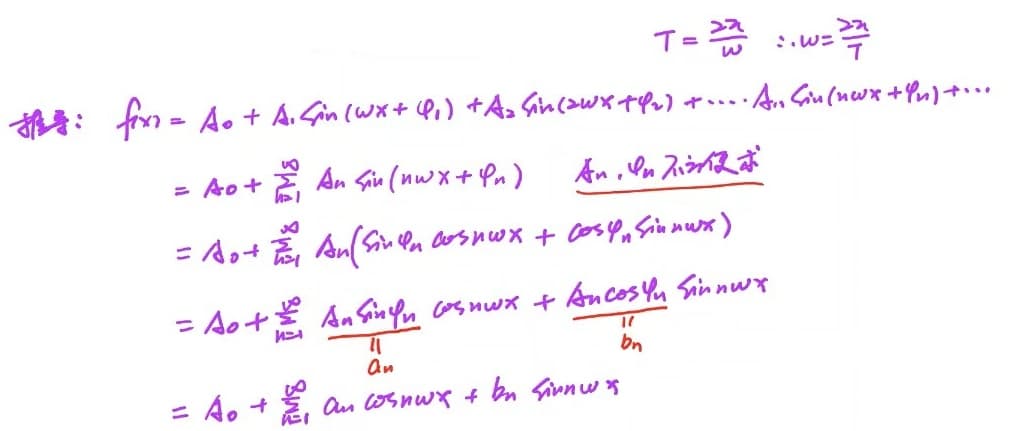 T = 2π/w ∴ w = 2π/T
推导: f(x) = A₀ + A₁ Sin(wx + φ₁) + A₂ Sin(2wx + φ₂) + .... Aₙ Sin(nwx + φₙ) + ...
= A₀ + ∑_{n=1}^{∞} Aₙ Sin(nwx + φₙ) Aₙ, φₙ 不方便求
= A₀ + ∑_{n=1}^{∞} Aₙ(Sinφₙ cosnwx + cosφₙ Sinnwx)
= A₀ + ∑_{n=1}^{∞} AₙSinφₙ cosnwx + Aₙcosφₙ Sinnwx
|| ||
aₙ bₙ
= A₀ + ∑_{n=1}^{∞} aₙ cosnwx + bₙ Sinnwx